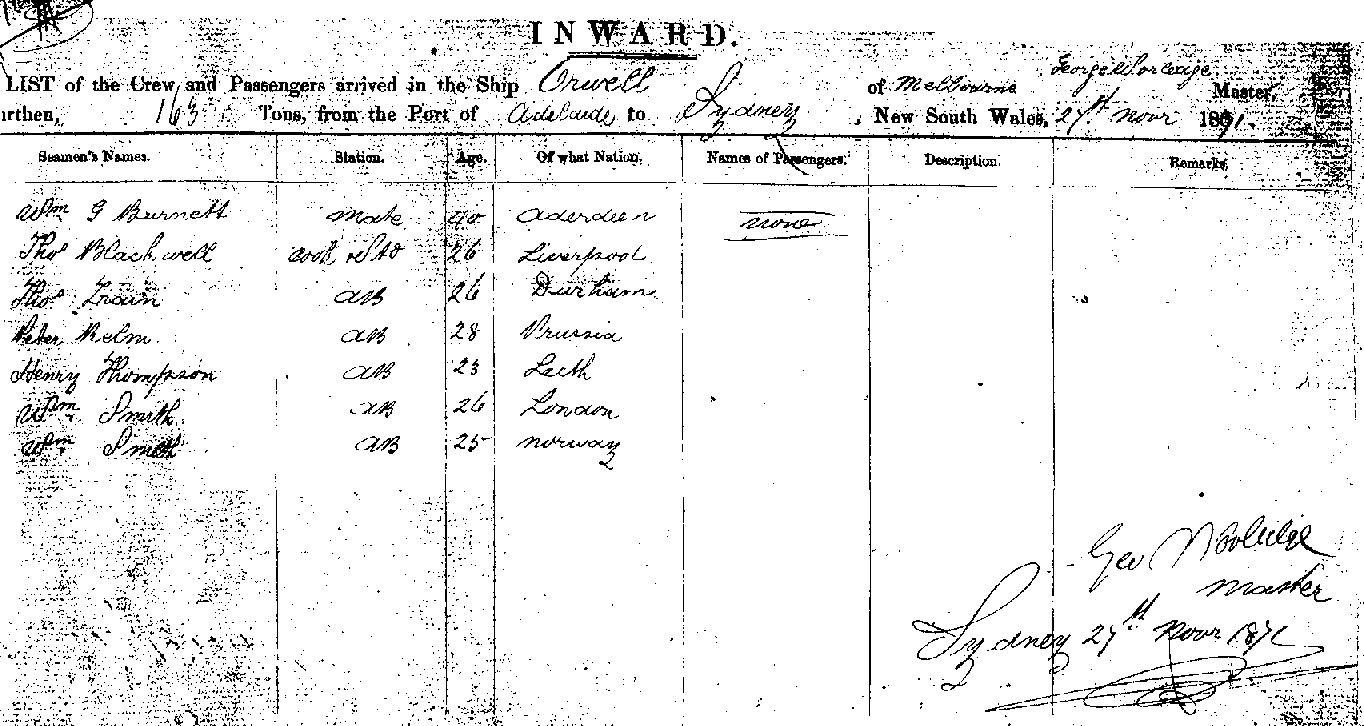 INWARD.
LIST of the Crew and Passengers arrived in the Ship Orwell of Melbourne George Master,
urthen, 163 Tons, from the Port of Adelaide to Sydney, New South Wales, 27th Novr 1871.
Seamen's Names. Station. Age. Of what Nation. Names of Passengers. Description. Remarks.
Wm G Burnett Mate 40 Aderdeen none
Thos Blackwell cook & Std 26 Liverpool
Thos AB 26 Durham
Peter Relm AB 28 Prussia
Henry Thompson AB 23 Leith
Wm Smith AB 26 London
Wm Smith AB 25 Norway
Geo
Master
Sydney 27th Novr 1871